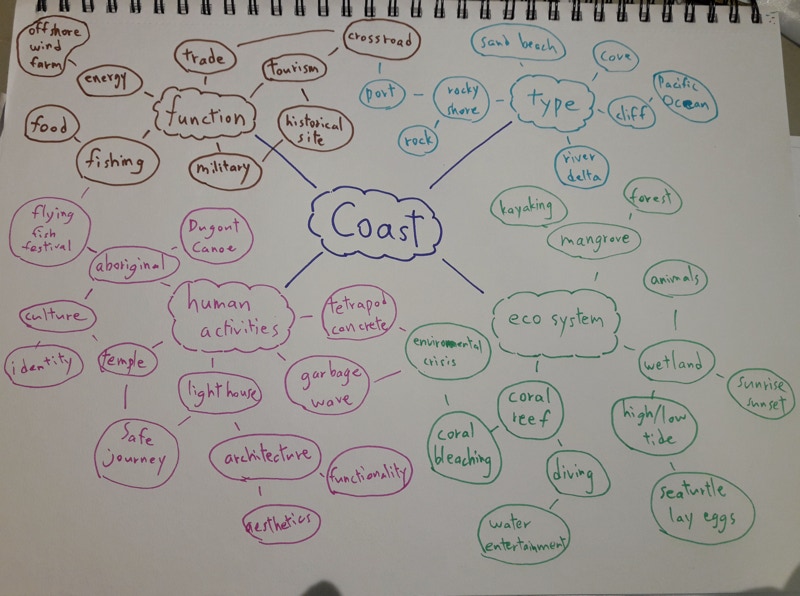 offshore
wind
farm
energy
trade
crossroad
tourism
function
food
fishing
military
historical
site
sand beach
cove
port
rocky
shore
type
cliff
Pacific
Ocean
rock
river
delta
Coast
flying
fish
festival
Dugont
Canoe
aboriginal
human
activities
culture
identity
temple
light house
safe
journey
architecture
functionality
aesthetics
tetrapod
concrete
garbage
wave
kayaking
forest
mangrove
animals
eco system
enviromental
crisis
wetland
sunrise
sunset
coral
reef
coral
bleaching
high/low
tide
diving
seaturtle
lay eggs
water
entertainment